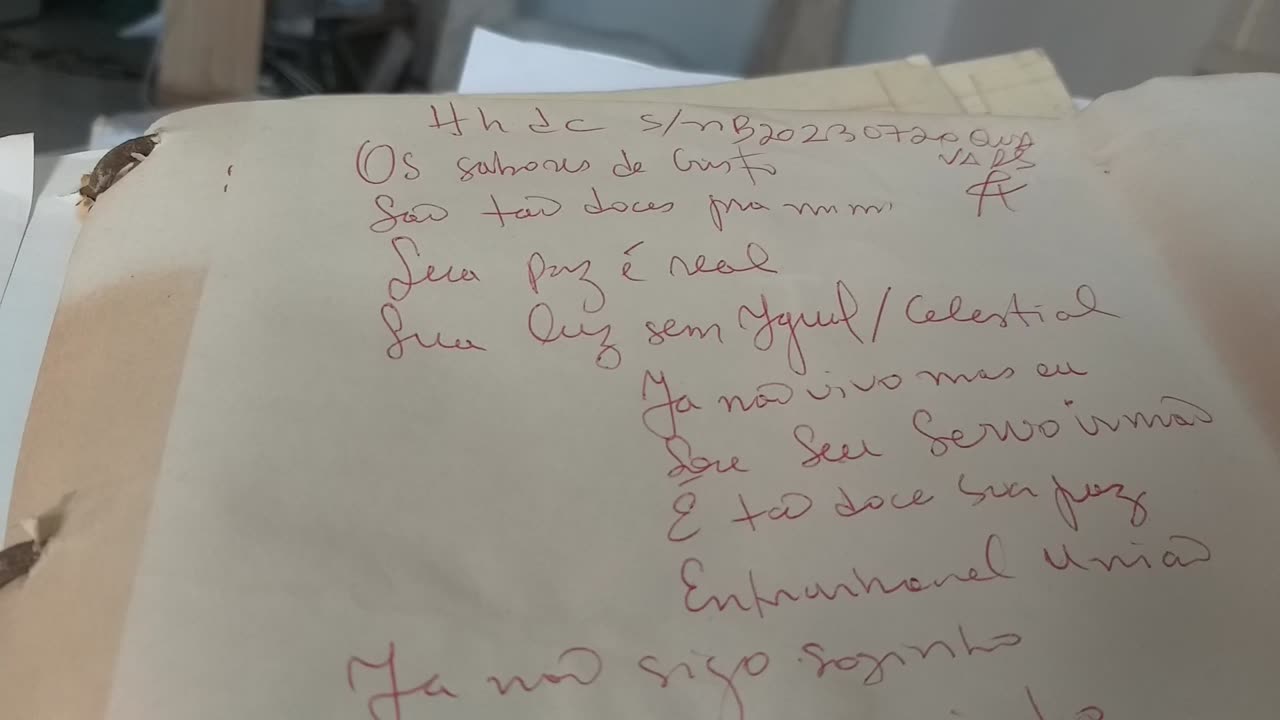 Hhdc s/nB20230720 QUA
VAPS
Os sabores de Cristo
São tão doces pra mim
Sua paz é real
Sua luz sem Ygual/Celestial
Ja não vivo mas eu
Sou Seu Servo irmão
É tão doce sua paz
Entranhavel União
Ja não sigo sozinho